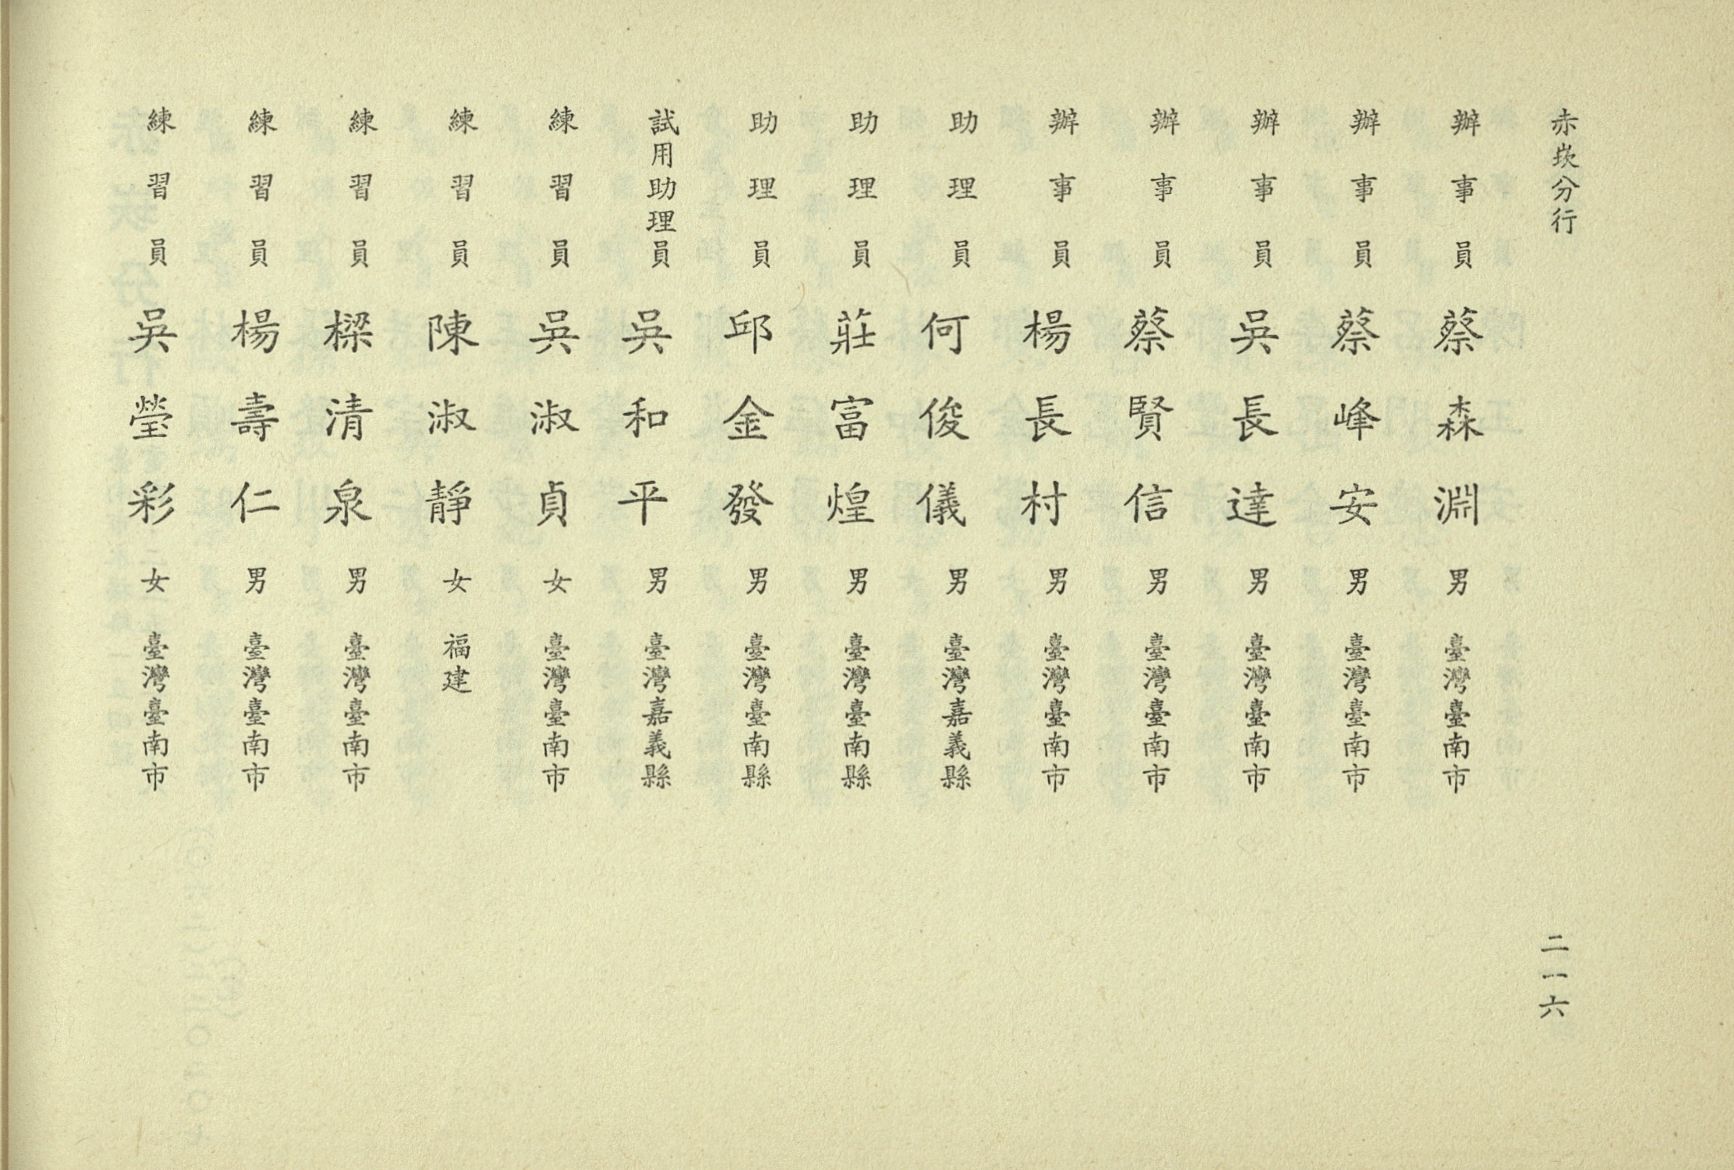 赤崁分行
辦事員 蔡森淵 男 臺灣臺南市
辦事員 蔡峰安 男 臺灣臺南市
辦事員 吳長達 男 臺灣臺南市
辦事員 蔡賢信 男 臺灣臺南市
辦事員 楊長村 男 臺灣臺南市
助理員 何俊儀 男 臺灣嘉義縣
助理員 莊富煌 男 臺灣臺南縣
助理員 邱金發 男 臺灣臺南縣
試用助理員 吳和平 男 臺灣嘉義縣
練習員 吳淑貞 女 臺灣臺南市
練習員 陳淑靜 女 福建
練習員 樑清泉 男 臺灣臺南市
練習員 楊壽仁 男 臺灣臺南市
練習員 吳瑩彩 女 臺灣臺南市
二一六